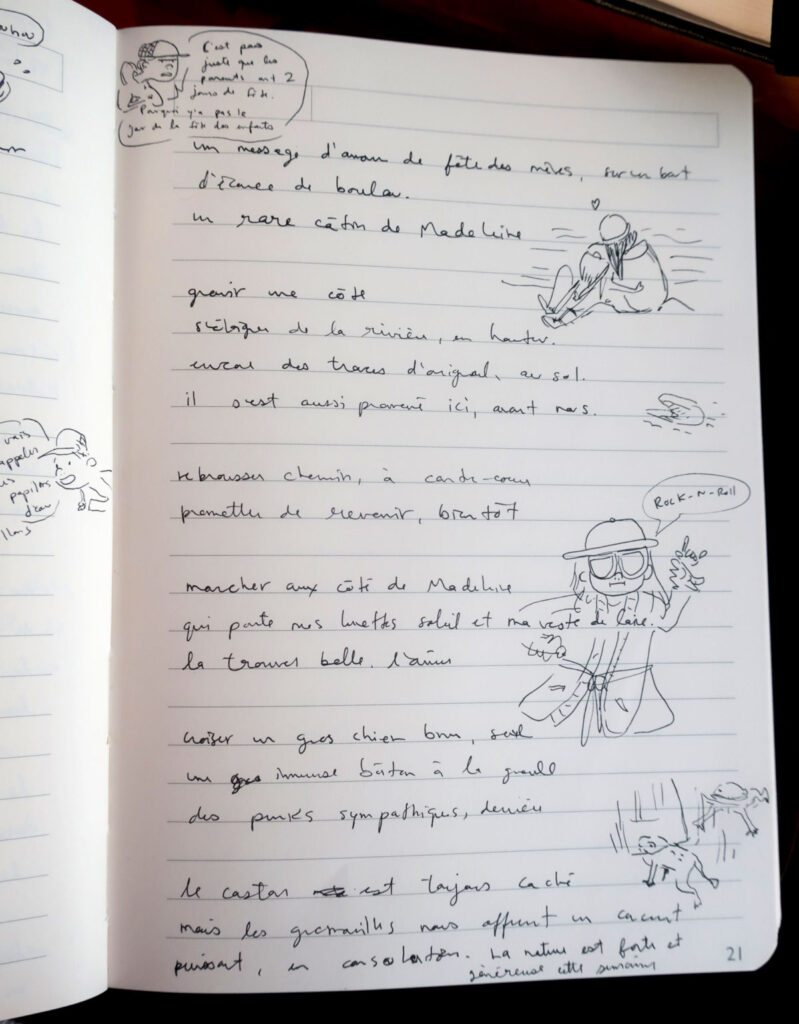 C'est pas
juste que les
parents ont 2
jours de fête.
Pourquoi y'a pas le
jour de la fête des enfants
un message d'amour de fête des mères, sur un bout
d'écorce de bouleau.
un rare câlin de Madeleine
gravir une côte
s'éloigner de la rivière, en hauteur.
encore des traces d'orignal, au sol.
il s'est aussi promené ici, avant nous.
rebrousser chemin, à contre-coeur
promettre de revenir, bientôt
Rock-N-Roll
marcher aux côté de Madeleine
qui porte mes lunettes soleil et ma veste de laine.
la trouver belle. l'aimer
croiser un gros chien brun, seul
une immense bâton à la gueule
des punks sympathiques, derrière
le castor est toujours caché
mais les grenouilles nous offrent un concert
puissant, en consolation. La nature est forte et
généreuse cette semaine
21
vais
appeler
papillon
d'eau